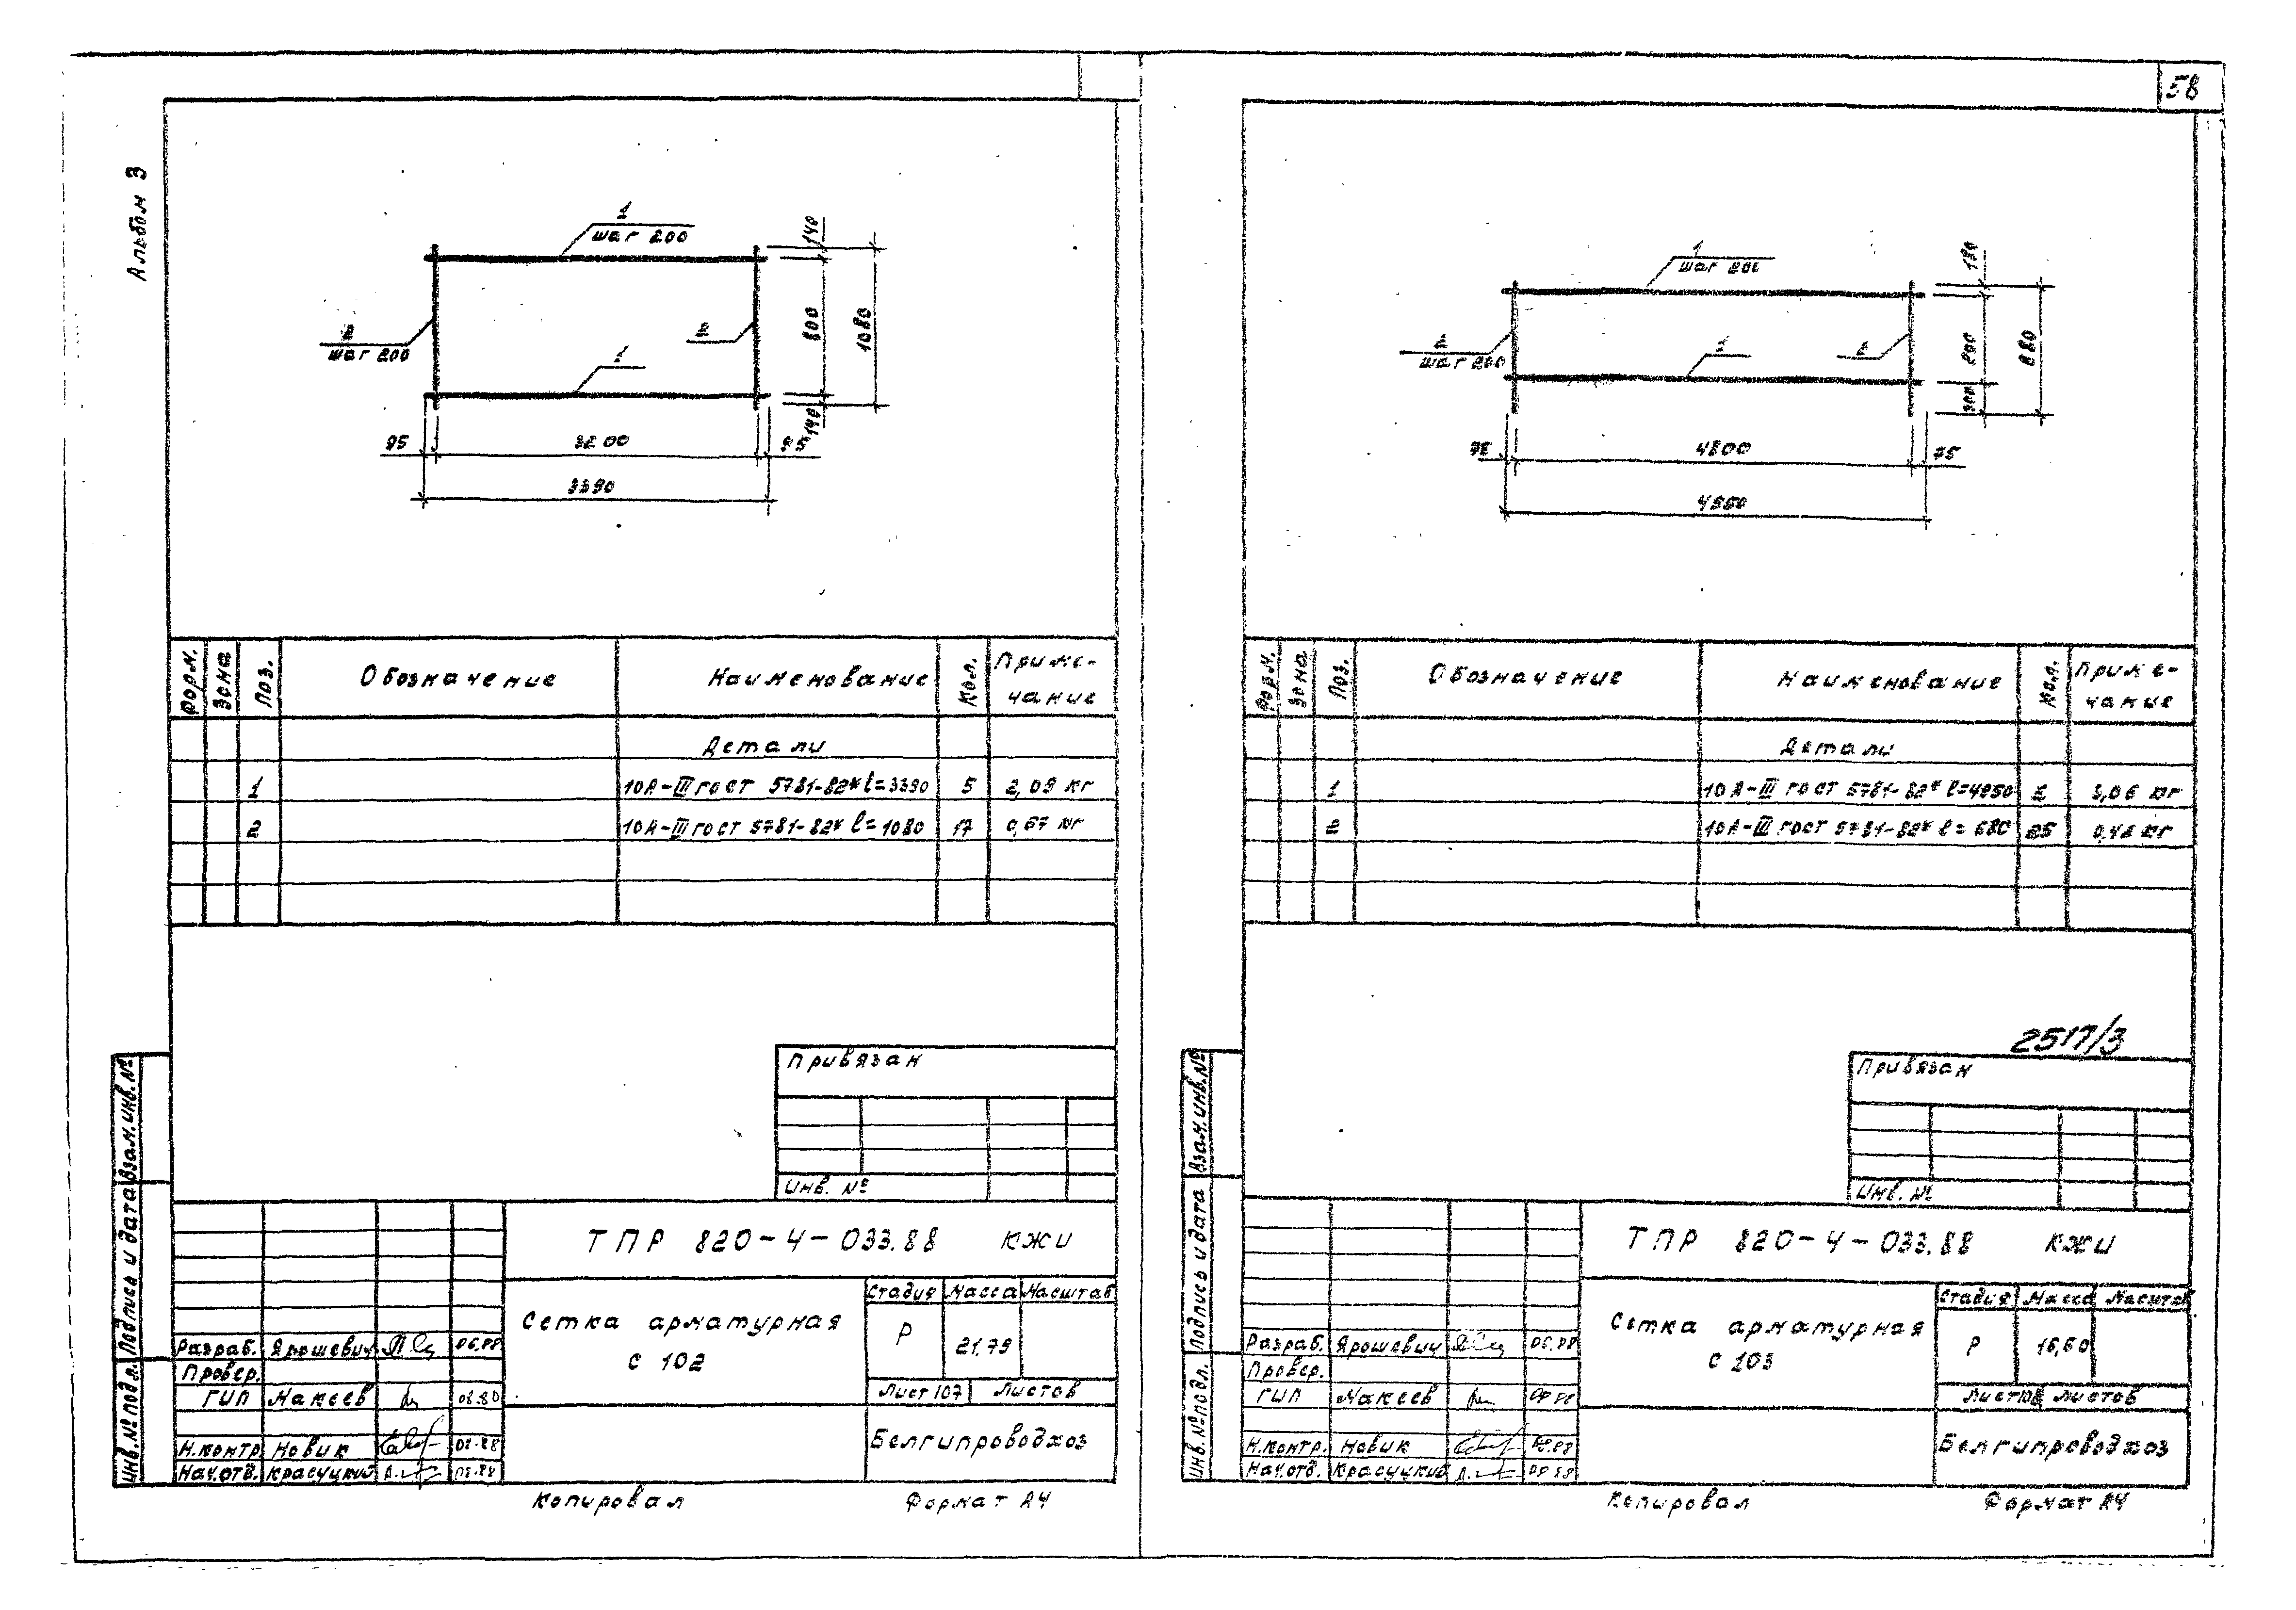 58
Альбом 3
1
шаг 200
2
шаг 200
2
1
140
800
1080
140
95
3200
95
3390
Форм.
Зона
Поз.
Обозначение
Наименование
Кол.
Приме-
чание
Детали
1 10А-III ГОСТ 5781-82* l=3390 5 2,09 кг
2 10А-III ГОСТ 5781-82* l=1080 17 0,67 кг
Привязан
Инв. №
ТПР 820-4-033.88 КЖИ
Сетка арматурная
С 102
Стадия Масса Масштаб
Р 21,79
Лист 107 Листов
Белгипроводхоз
Разраб. Ярошевич 06.88
Провер.
ГИП Макеев
Н.контр. Новик 08.88
Нач.отд. Красуцкий 08.88
Взам.инв.№
Подпись и дата
Инв.№ подл.
Копировал Формат А4
1
шаг 200
2
шаг 200
1
2
200
75
4800
75
4950
Форм.
Зона
Поз.
Обозначение
Наименование
Кол.
Приме-
чание
Детали
1 10А-III ГОСТ 5781-82* l=4950 2 3,06 кг
2 10А-III ГОСТ 5781-82* l=680 25 0,42 кг
2517/3
Привязан
Инв. №
ТПР 820-4-033.88 КЖИ
Сетка арматурная
С 103
Стадия Масса Масштаб
Р 16,60
Лист 108 Листов
Белгипроводхоз
Разраб. Ярошевич 06.88
Провер.
ГИП Макеев
Н.контр. Новик 08.88
Нач.отд. Красуцкий 08.88
Взам.инв.№
Подпись и дата
Инв.№ подл.
Копировал Формат А4